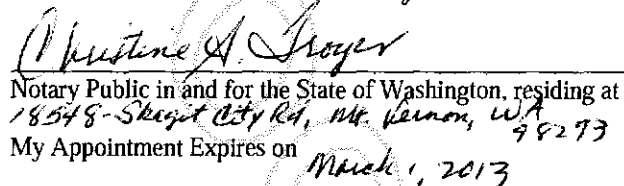 Christine A. Troyer
Notary Public in and for the State of Washington, residing at
18548-Skagit City Rd, Mt. Vernon, WA
98273
My Appointment Expires on
March 1, 2013